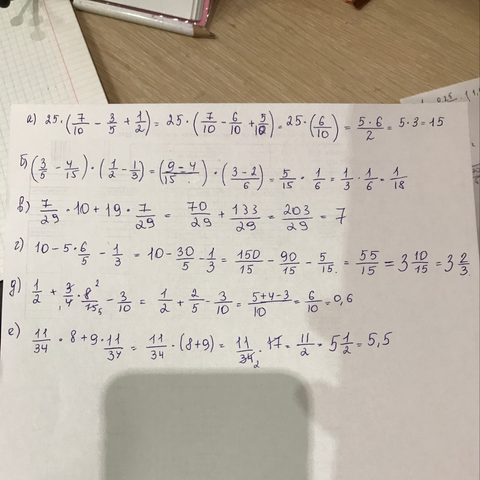 а) 25·(7/10 − 3/5 + 1/2) = 25·(7/10 − 6/10 + 5/10) = 25·(6/10) = 5·6/2 = 5·3 = 15
б) (3/5 − 4/15)·(1/2 − 1/3) = (9−4/15)·(3−2/6) = 5/15 · 1/6 = 1/3 · 1/6 = 1/18
в) 7/29 · 10 + 19 · 7/29 = 70/29 + 133/29 = 203/29 = 7
г) 10 − 5·6/5 − 1/3 = 10 − 30/5 − 1/3 = 150/15 − 90/15 − 5/15 = 55/15 = 3 10/15 = 3 2/3
д) 1/2 + 3/4 · 8 2/15 5 − 3/10 = 1/2 + 2/5 − 3/10 = 5+4−3/10 = 6/10 = 0,6
е) 11/34 · 8 + 9 · 11/34 = 11/34 · (8+9) = 11/34 2 · 17 = 11/2 = 5 1/2 = 5,5